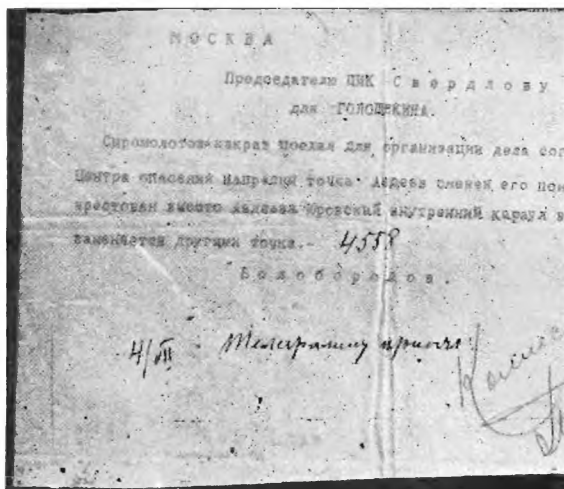 МОСКВА
Председателю ЦИК Свердлову
для ГОЛОЩЕКИНА.
Сыромолотов какраз поехал для организации дела сог
Центра опасения напрасны точка Авдеев сменен его пом
арестован вместо Авдеева Юровский внутренний караул в
заменяется другими точка.- 4558
Белобородов.
4/VII Телеграмму принял